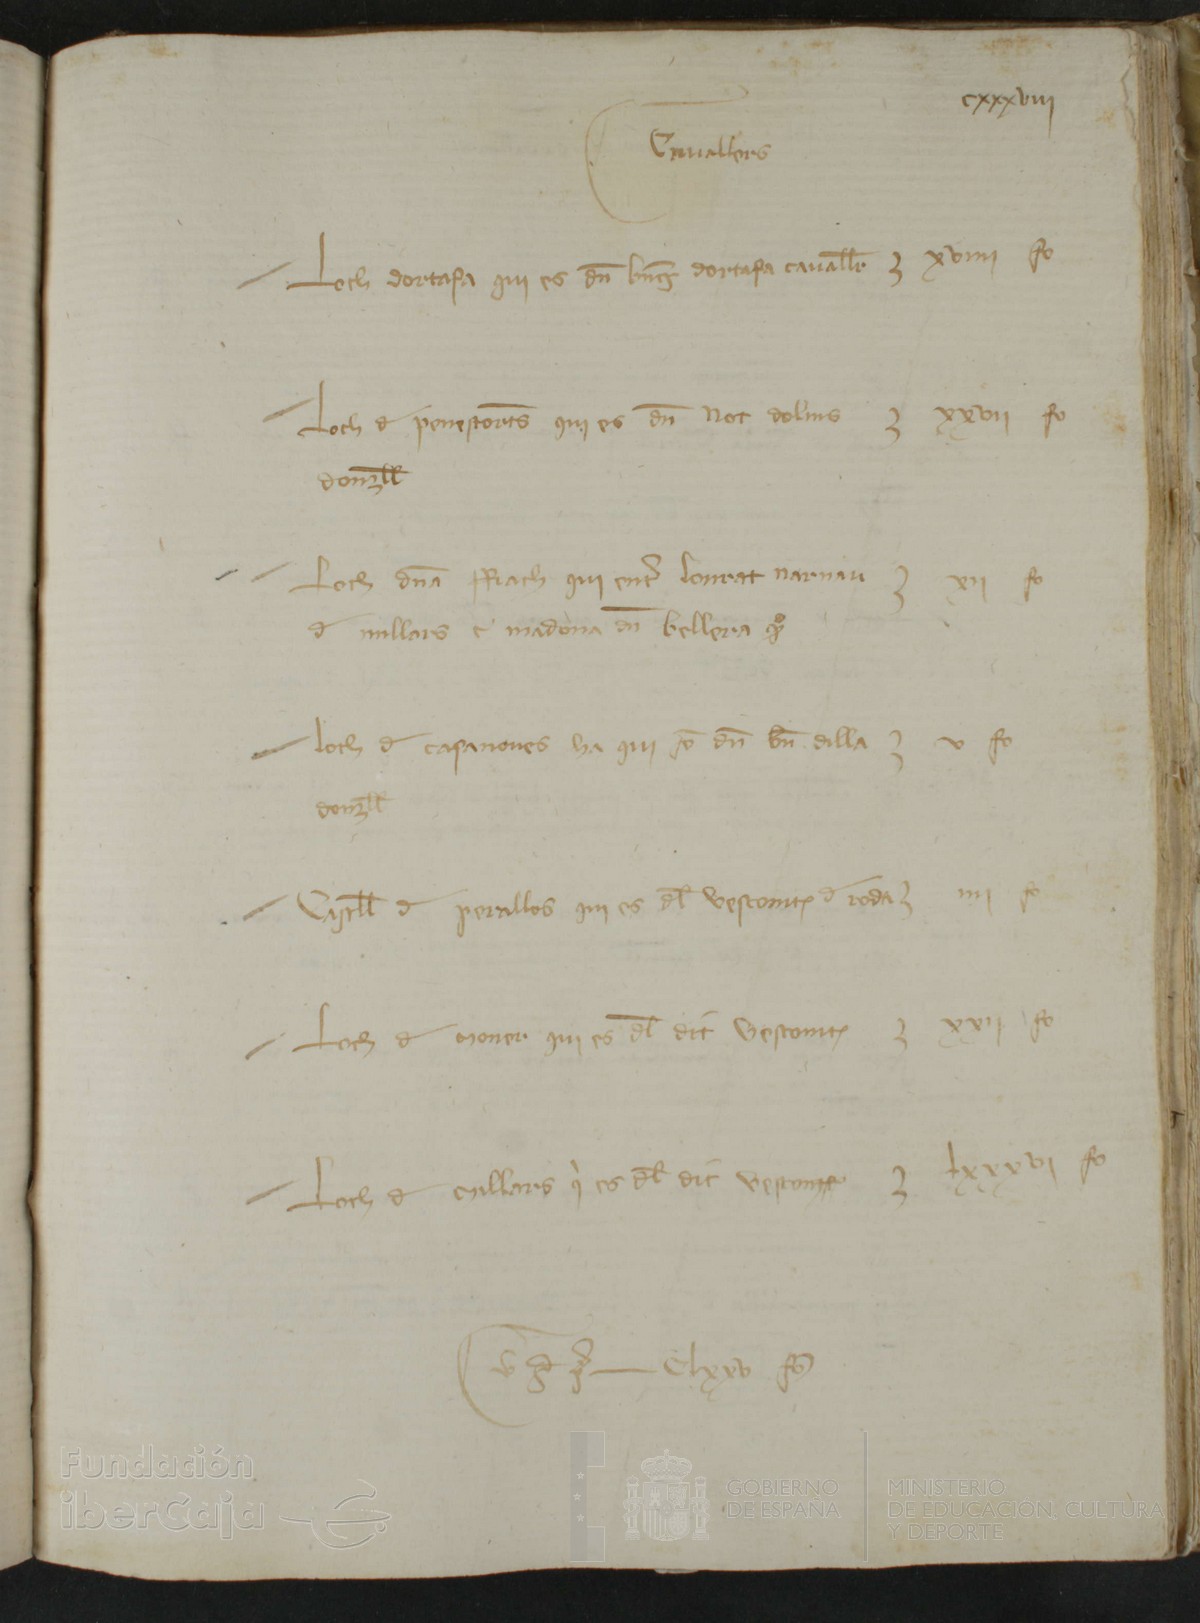 cxxxviii
Cauallers
Loch dortafa qui es dn bng dortafa cauallr xviiii fo
Loch d penestorts qui es dn Not dolms xxvii fo
donzll
Loch dna ffrach qui lonrat narnau xii fo
d millars e madona dn bellera
Loch d casanoues ha qui dn bn dilla v fo
donzll
Castll d perallos qui es dl vescomte d roda iiii fo
Loch d moner qui es dl dit vescomte xxii fo
Loch d millars q es dl dit vescomte lxxxvi fo
Clxxv fo
Fundación
iberCaja
GOBIERNO
DE ESPAÑA
MINISTERIO
DE EDUCACIÓN, CULTURA
Y DEPORTE